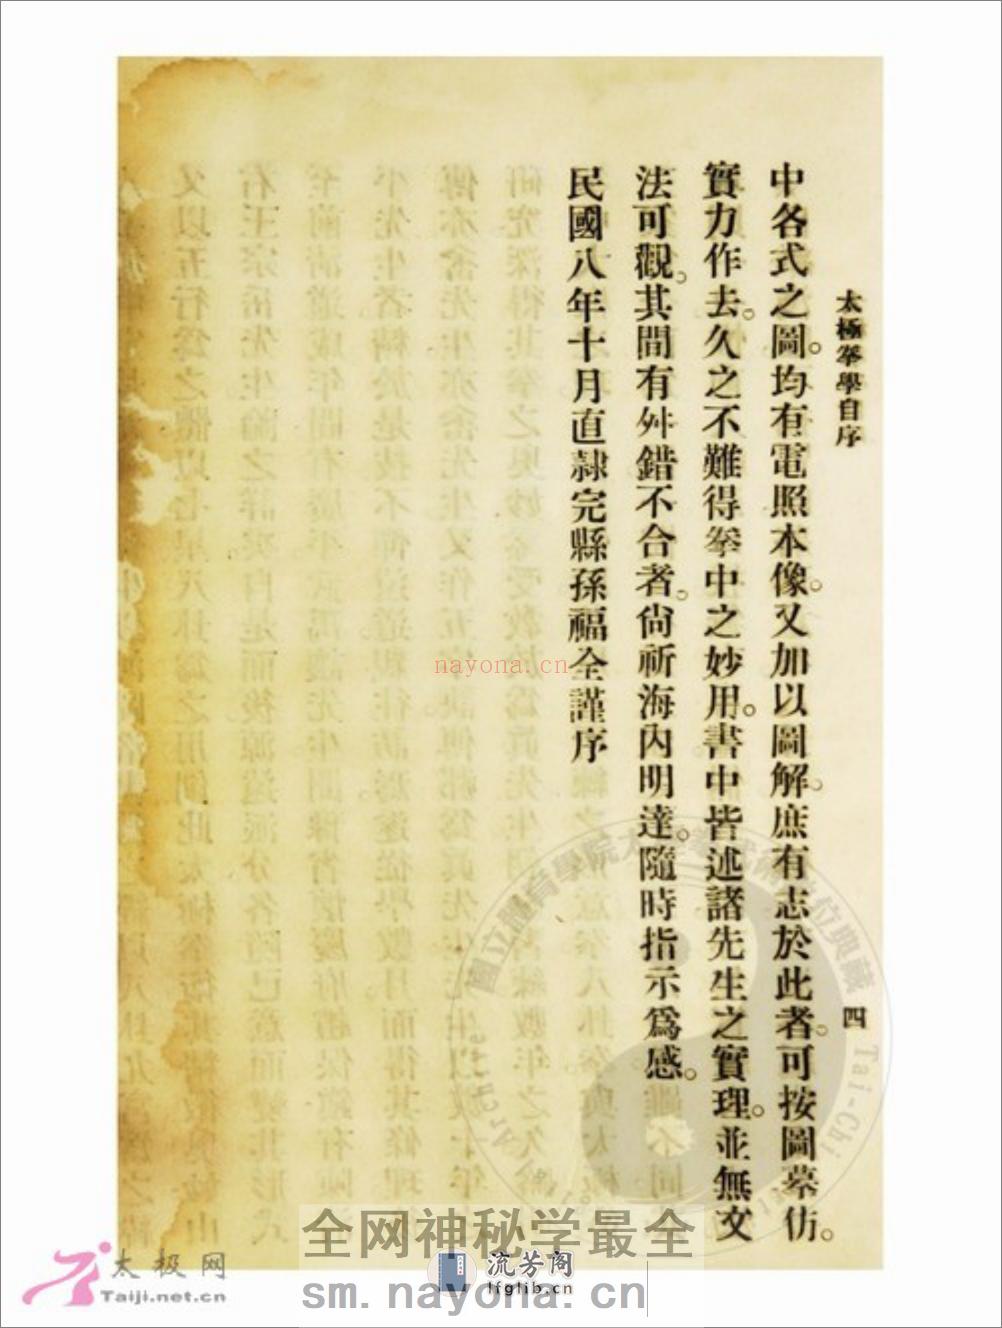 太極拳學自序
四
中各式之圖。均有電照本像。又加以圖解。庶有志於此者。可按圖摹仿。
實力作去。久之不難得拳中之妙用。書中皆述諸先生之實理。並無文
法可觀。其間有舛錯不合者。尙祈海內明達。隨時指示爲感。
民國八年十月直隸完縣孫福全謹序
nayona.cn
全网神秘学最全
流芳阁
lfglib.cn
sm.nayona.cn
太极网
Taiji.net.cn